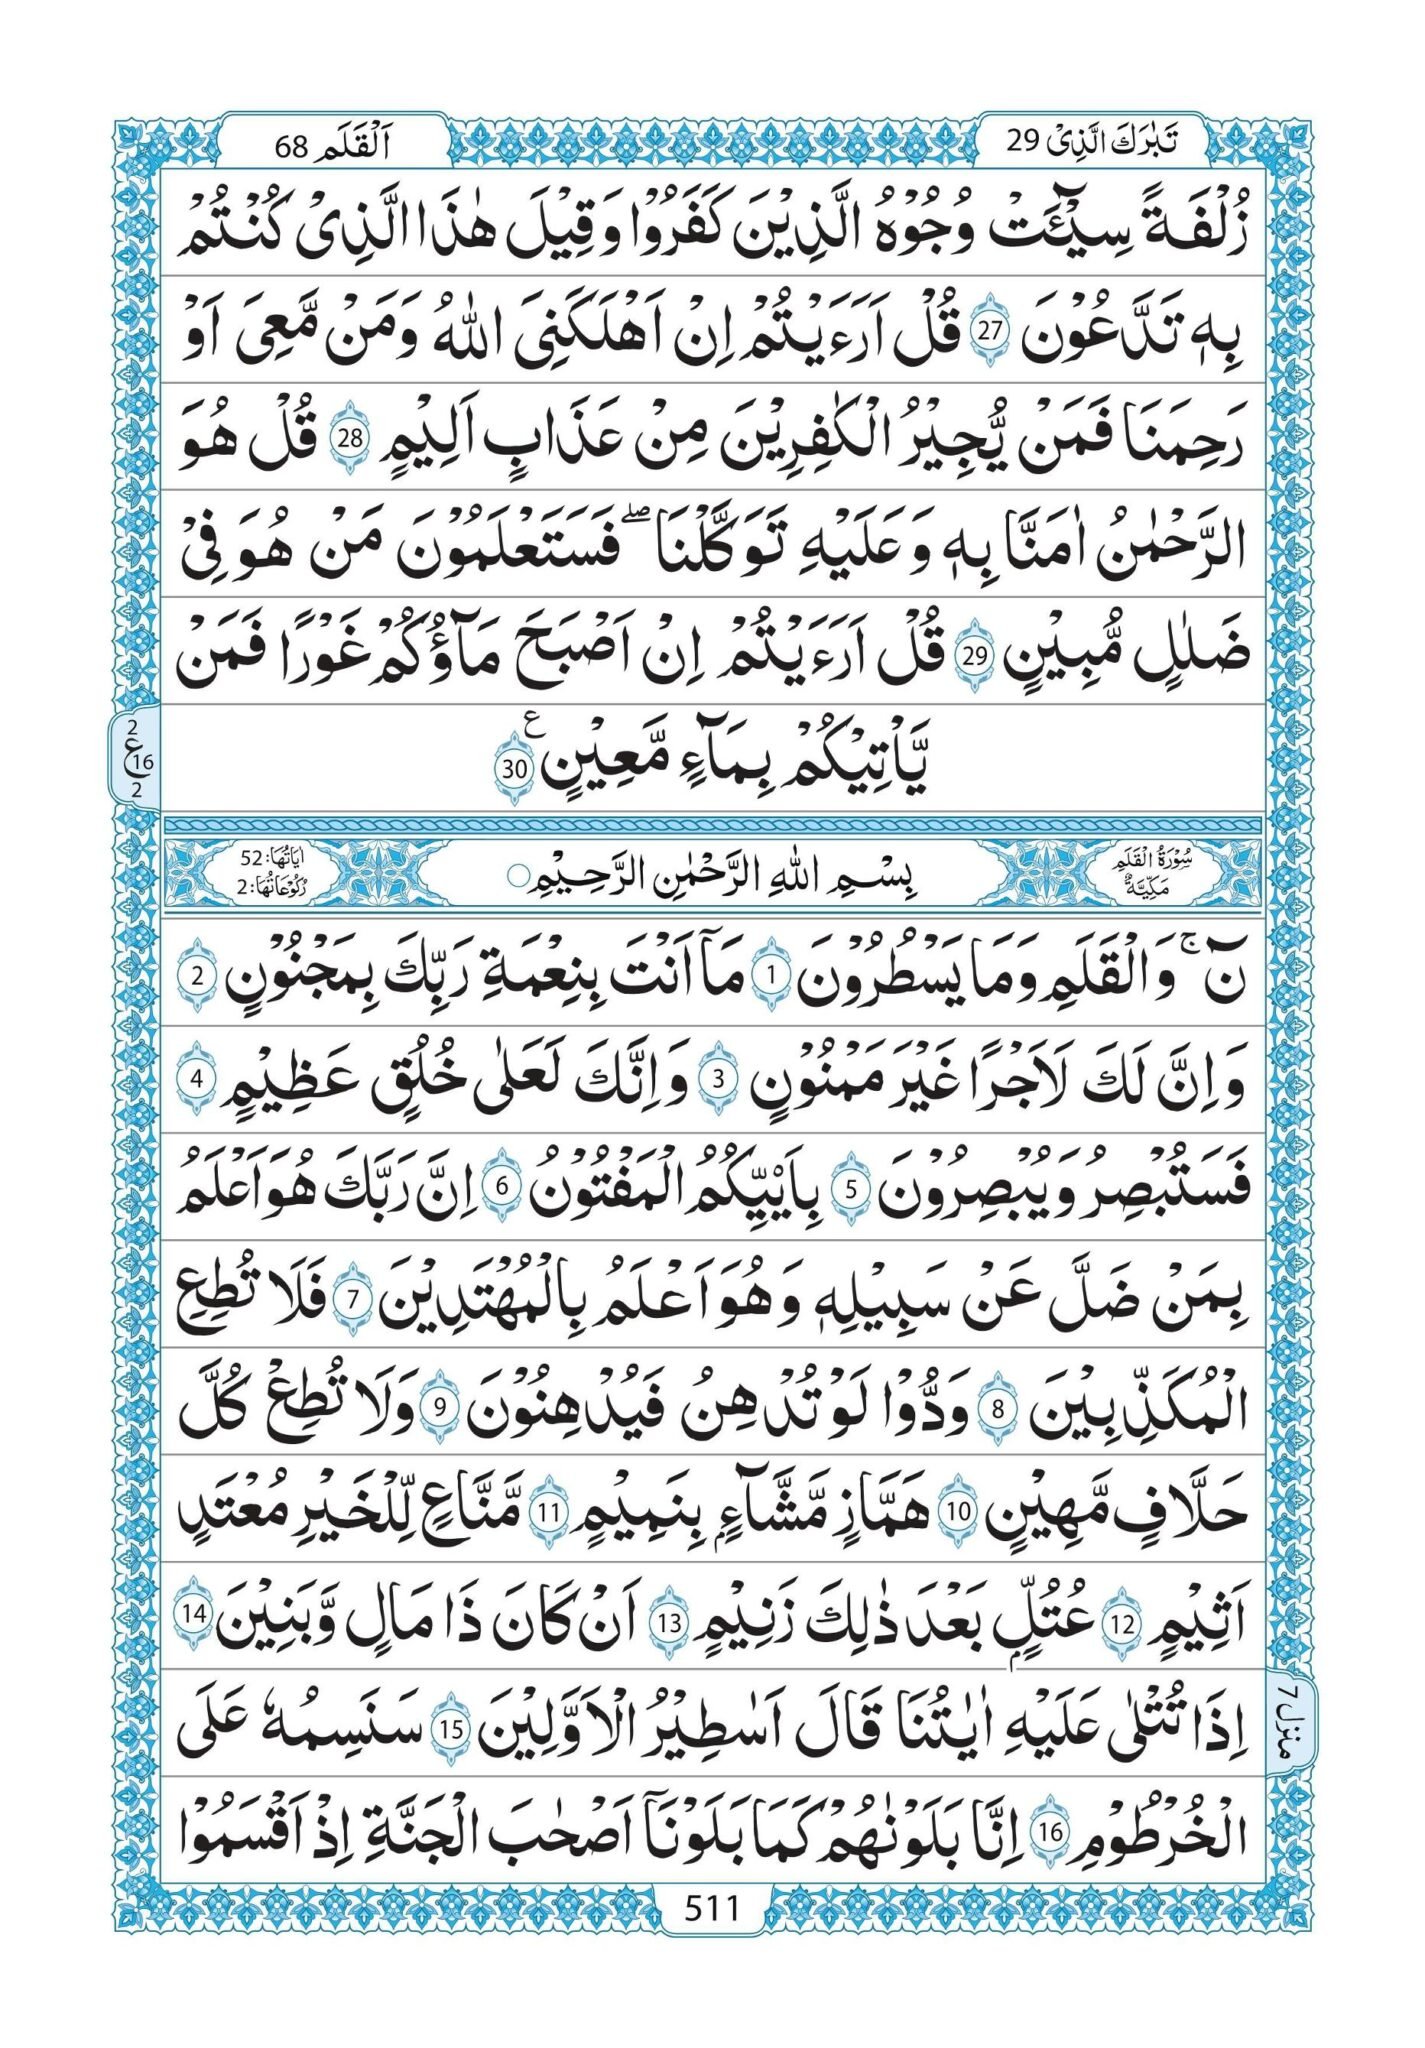 تَبٰرَكَ الَّذِىْ 29
اَلْقَلَم 68
زُلْفَةً سِيْٓـَٔتْ وُجُوْهُ الَّذِيْنَ كَفَرُوْا وَقِيْلَ هٰذَا الَّذِىْ كُنْتُمْ
بِهٖ تَدَّعُوْنَ 27 قُلْ اَرَءَيْتُمْ اِنْ اَهْلَكَنِىَ اللّٰهُ وَمَنْ مَّعِىَ اَوْ
رَحِمَنَا فَمَنْ يُّجِيْرُ الْكٰفِرِيْنَ مِنْ عَذَابٍ اَلِيْمٍ 28 قُلْ هُوَ
الرَّحْمٰنُ اٰمَنَّا بِهٖ وَعَلَيْهِ تَوَكَّلْنَا ۖ فَسَتَعْلَمُوْنَ مَنْ هُوَ فِىْ
ضَلٰلٍ مُّبِيْنٍ 29 قُلْ اَرَءَيْتُمْ اِنْ اَصْبَحَ مَآؤُكُمْ غَوْرًا فَمَنْ
يَّاْتِيْكُمْ بِمَآءٍ مَّعِيْنٍ 30 ع
2 ع 16 2
سُوْرَةُ الْقَلَمِ
مَكِّيَّةٌ
بِسْمِ اللّٰهِ الرَّحْمٰنِ الرَّحِيْمِ
اٰيَاتُهَا: 52
رُكُوْعَاتُهَا: 2
نٓ ۚ وَالْقَلَمِ وَمَا يَسْطُرُوْنَ 1 مَآ اَنْتَ بِنِعْمَةِ رَبِّكَ بِمَجْنُوْنٍ 2
وَاِنَّ لَكَ لَاَجْرًا غَيْرَ مَمْنُوْنٍ 3 وَاِنَّكَ لَعَلٰى خُلُقٍ عَظِيْمٍ 4
فَسَتُبْصِرُ وَيُبْصِرُوْنَ 5 بِاَيْىِّكُمُ الْمَفْتُوْنُ 6 اِنَّ رَبَّكَ هُوَ اَعْلَمُ
بِمَنْ ضَلَّ عَنْ سَبِيْلِهٖ وَهُوَ اَعْلَمُ بِالْمُهْتَدِيْنَ 7 فَلَا تُطِعِ
الْمُكَذِّبِيْنَ 8 وَدُّوْا لَوْ تُدْهِنُ فَيُدْهِنُوْنَ 9 وَلَا تُطِعْ كُلَّ
حَلَّافٍ مَّهِيْنٍ 10 هَمَّازٍ مَّشَّآءٍۭ بِنَمِيْمٍ 11 مَّنَّاعٍ لِّلْخَيْرِ مُعْتَدٍ
اَثِيْمٍ 12 عُتُلٍّۭ بَعْدَ ذٰلِكَ زَنِيْمٍ 13 اَنْ كَانَ ذَا مَالٍ وَّبَنِيْنَ 14
اِذَا تُتْلٰى عَلَيْهِ اٰيٰتُنَا قَالَ اَسٰطِيْرُ الْاَوَّلِيْنَ 15 سَنَسِمُهٗ عَلَى
الْخُرْطُوْمِ 16 اِنَّا بَلَوْنٰهُمْ كَمَا بَلَوْنَآ اَصْحٰبَ الْجَنَّةِ اِذْ اَقْسَمُوْا
منزل 7
511